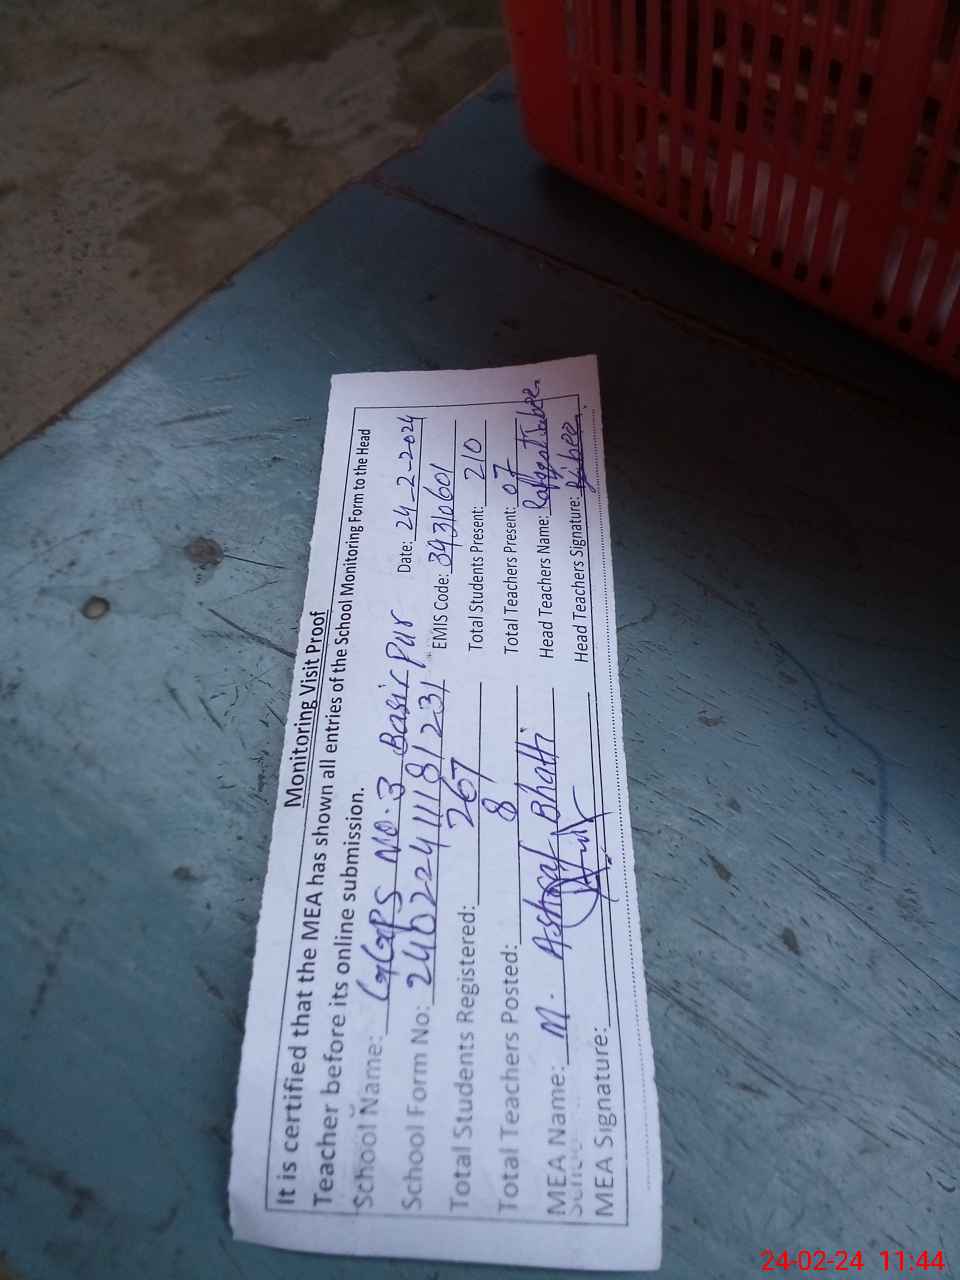 Monitoring Visit Proof
It is certified that the MEA has shown all entries of the School Monitoring Form to the Head
Teacher before its online submission.
School Name: GGPS NO.3 Basir Pur Date: 24-2-2024
School Form No: 24022411181231 EMIS Code: 39310601
Total Students Registered: 267 Total Students Present: 210
Total Teachers Posted: 8 Total Teachers Present: 07
MEA Name: M. Ashraf Bhatti Head Teachers Name:
MEA Signature: Head Teachers Signature:
24-02-24 11:44